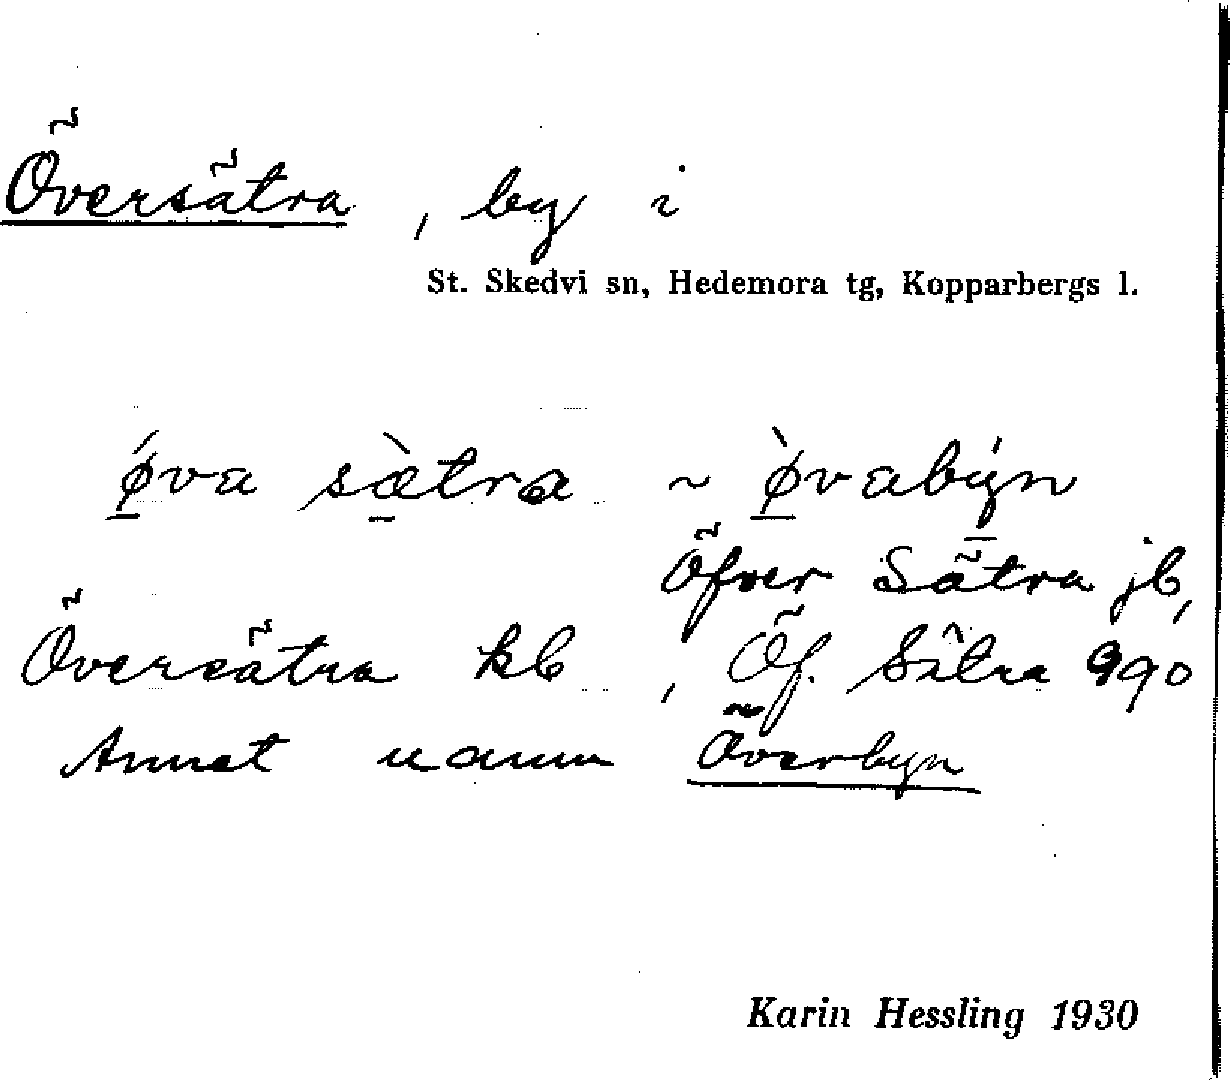 Översätra, by i
St. Skedvi sn, Hedemora tg, Kopparbergs l.
ǿva sæ̀tra ~ ø̀vabýn
Öfver Sätra jb,
Översätra kb, Öf. Sätra 990
Annat namn Överbyn
Karin Hessling 1930